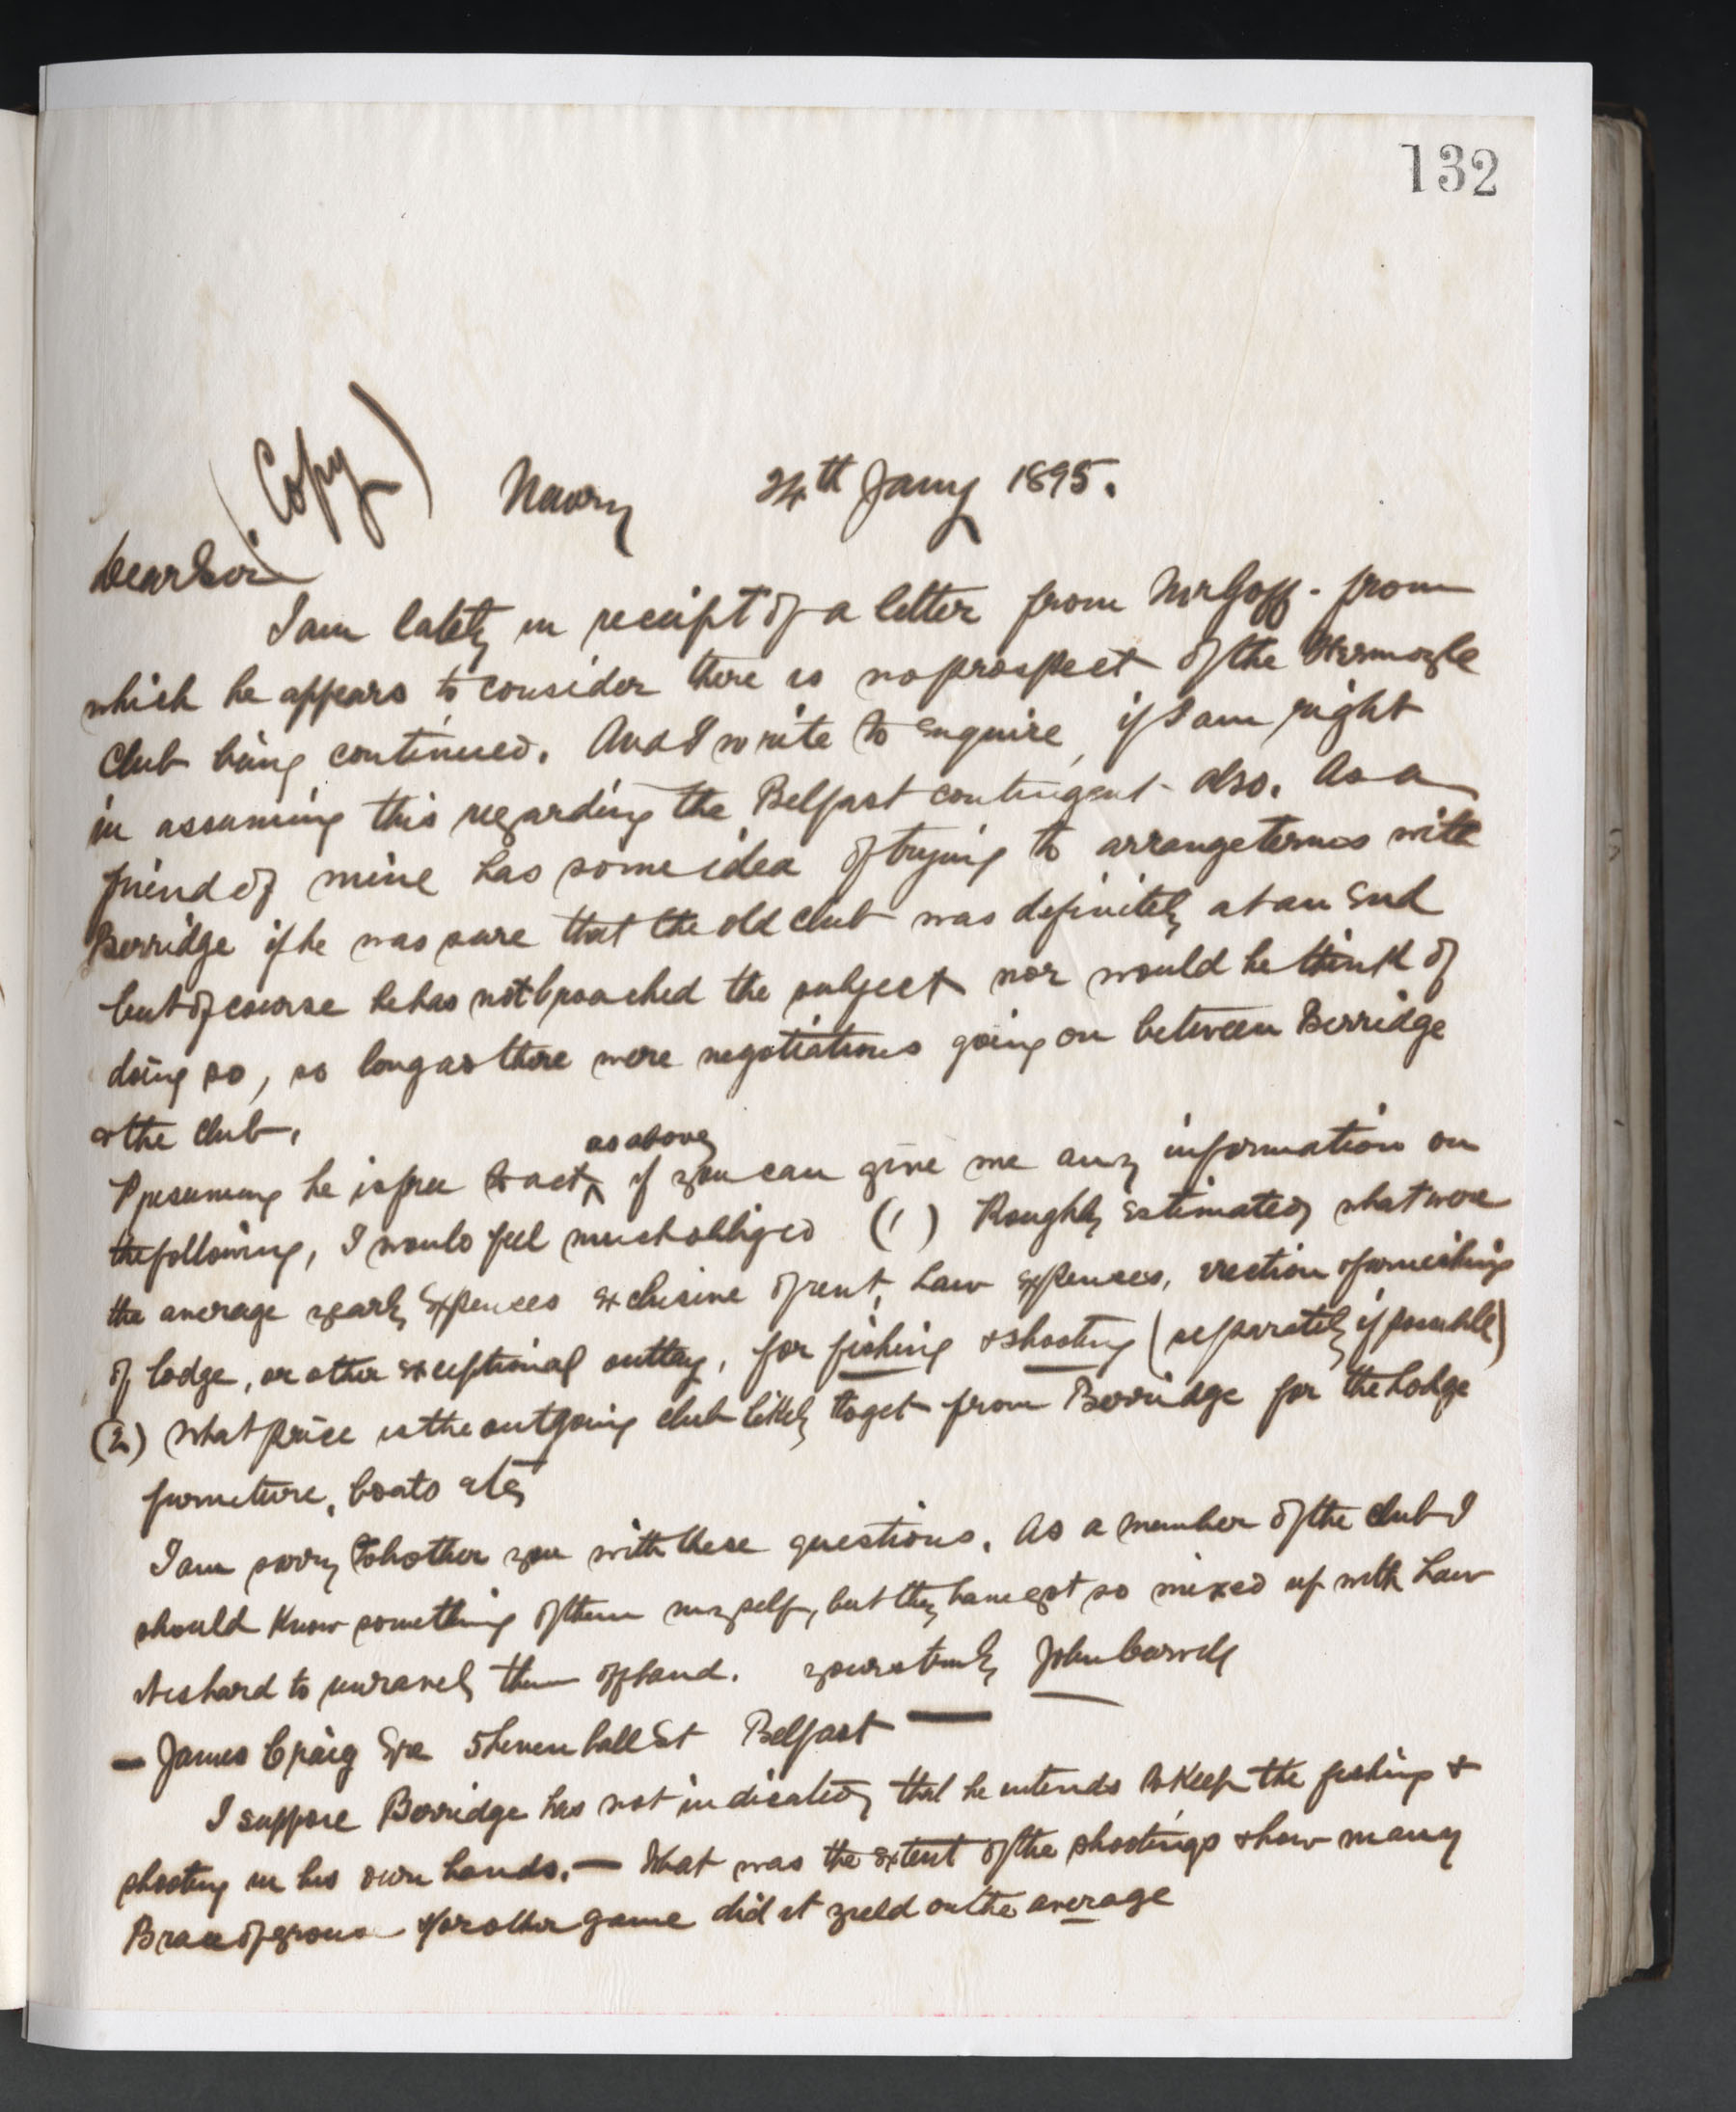 132
(Copy)
Newry 24th Jany 1895.
Dear Sir
I am lately in receipt of a letter from Mr Goff. from
which he appears to consider there is no prospect of the
Club being continued. And I write to enquire, if I am right
in assuming this regarding the Belfast contingent also. As a
friend of mine has some idea of trying to arrange terms with
Berridge if he was sure that the old club was definitely at an end
but of course he has not broached the subject nor would he think of
doing so, so long as there were negotiations going on between Berridge
& the club.
Presuming he is free to act as above, if you can give me any information on
the following, I would feel much obliged (1) Roughly estimated, what were
the average yearly expenses exclusive of rent, Law expenses, erection & furnishing
of lodge, or other exceptional outlay, for fishing & shooting (separately if possible)
(2) What price is the outgoing club likely to get from Berridge for the Lodge
furniture, boats etc
I am sorry to bother you with these questions. As a member of the club I
should know something of them myself, but they have got so mixed up with Law
it is hard to unravel them offhand. yours truly John
— James Craig Esq Belfast —
I suppose Berridge has not indicated, that he intends to keep the fishing &
shooting in his own hands. — What was the extent of the shootings & how many
Brace of grouse &/or other game did it yield on the average